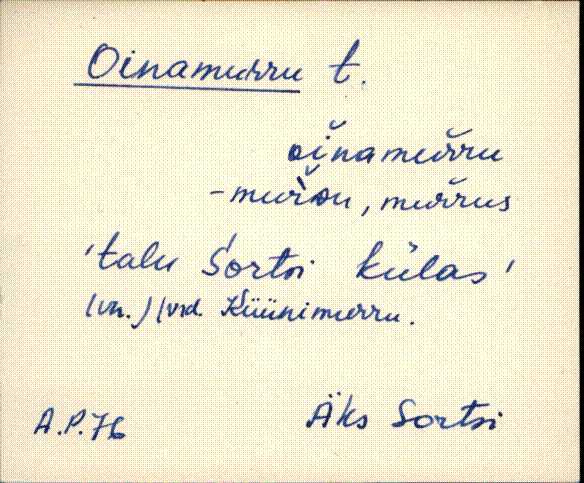 Oinamurru t.
oi̮namur̆ru
-mur̆ru, mur̆rus
'talu Sortsi külas'
(vn.) (vrd. Küünimurru.
A.P.76
Äks Sortsi